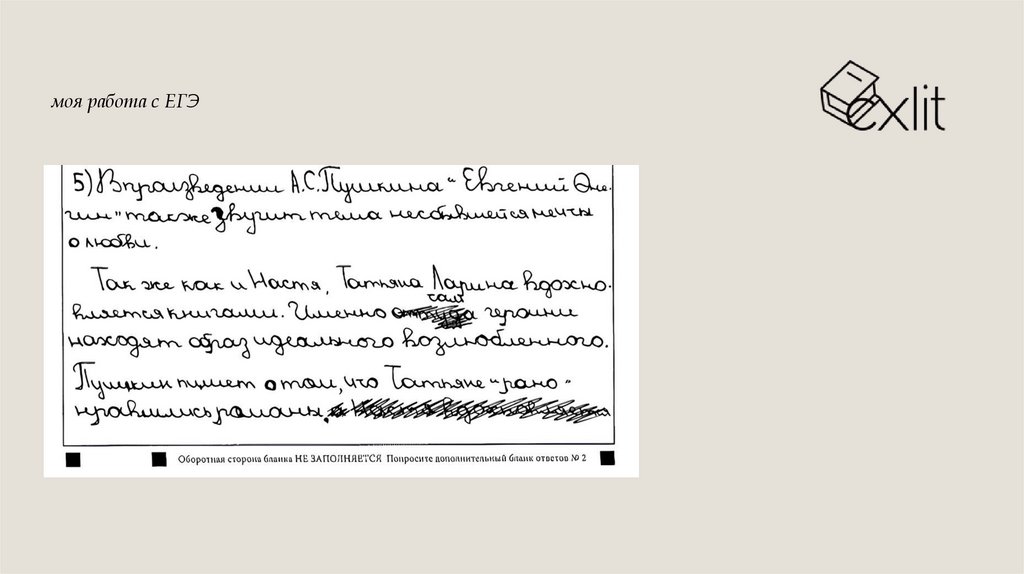 моя работа с ЕГЭ
exlit
5) В произведении А.С.Пушкина "Евгений Оне-
гин" также звучит тема несбывшейся мечты
о любви.
Так же как и Настя, Татьяна Ларина вдохно-
вляется книгами. Именно там героини
находят образ идеального возлюбленного.
Пушкин пишет о том, что Татьяне "рано"
нравились романы.
Оборотная сторона бланка НЕ ЗАПОЛНЯЕТСЯ Попросите дополнительный бланк ответов № 2